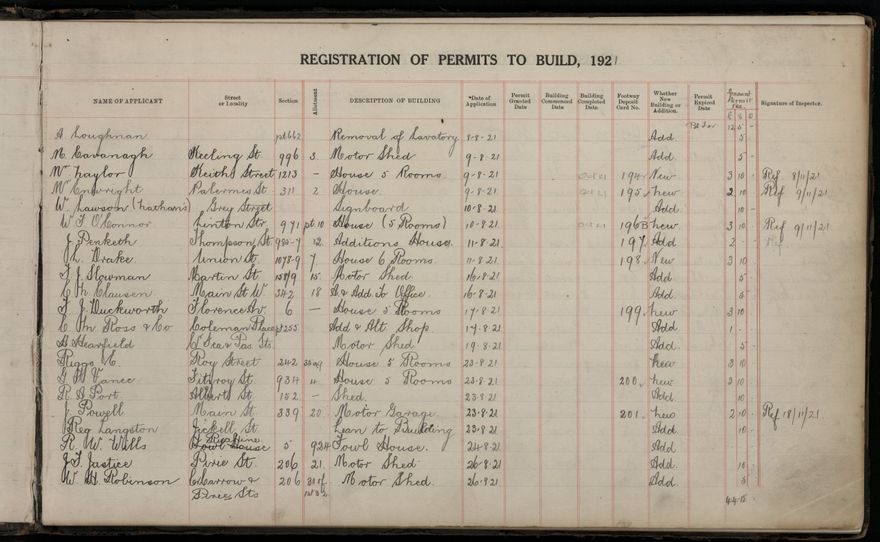 REGISTRATION OF PERMITS TO BUILD, 1921
NAME OF APPLICANT Street or Locality Section Allotment DESCRIPTION OF BUILDING Date of Application Permit Granted Date Building Commenced Date Building Completed Date Footway Deposit Card No. Whether New Building or Addition. Permit Expired Date Amount Permit Fee. Signature of Inspector.
£ s D
12 5 -
A Loughnan pt 662 Removal of Lavatory 8-8-21 Add 5
M. Cavanagh Keeling St. 996 3 Motor Shed 9-8-21 Add. 5 -
Wm Naylor Keiths Street 1213 - House 5 Rooms 9-8-21 Oct 21 194 New 3 10 Ref 8/11/21
Wm Enwright Palermes St 311 2 House 9-8-21 Oct 21 195 New 2 10 Ref 9/11/21
W Lawson (Nathans) Grey Street Signboard 10-8-21 Add 10 -
W. J. O'Connor Linton Str. 971 pt 10 House (5 Rooms) 10-8-21 Oct 21 196B New 3 10 Ref 9/11/21
J. Penketh Thompson St. 982-7 12 Additions House 11-8-21 197 Add 2 - Ref
J L. Drake Union St. 1078-9 7 House 6 Rooms 11-8-21 198 New 3 10
F. J. Slowman Martin St. 158/9 15 Motor Shed 16-8-21 Add 5
C M Clausen Main St W 342 18 A & Add to Office 16-8-21 Add. 5
F J. Duckworth Florence Av. 6 - House 5 Rooms 17-8-21 199 New 3 10
C. M Ross & Co Coleman Place pt 255 Add & Alt Shop. 17-8-21 Add 1 -
A Hearfield Motor Shed 19-8-21 Add. 5 -
Riggs C. Roy Street 242 House 5 Rooms 23-8-21 New 3 10
G H Vance Fitzroy St. 934 4 House 5 Rooms 23-8-21 200 New 3 10
R. A Port. Albert St. 152 - Shed. 23-8-21 Add. 10
J. Powell Main St. 339 20 Motor Garage. 23-8-21 201 New 2 10 - Ref 18/11/21
Reg Langston Jickell St. Lean to Building 23-8-21 Add 10 -
R. W. Wills 5 924 Fowl House. 24-8-21 Add
J. F. Justice Pirie St. 206 21 Motor Shed 26-8-21 Add. 10
W. H. Robinson Carrow & 206 Motor Shed. 26-8-21 Add 5
Piries Sts
44 15 -